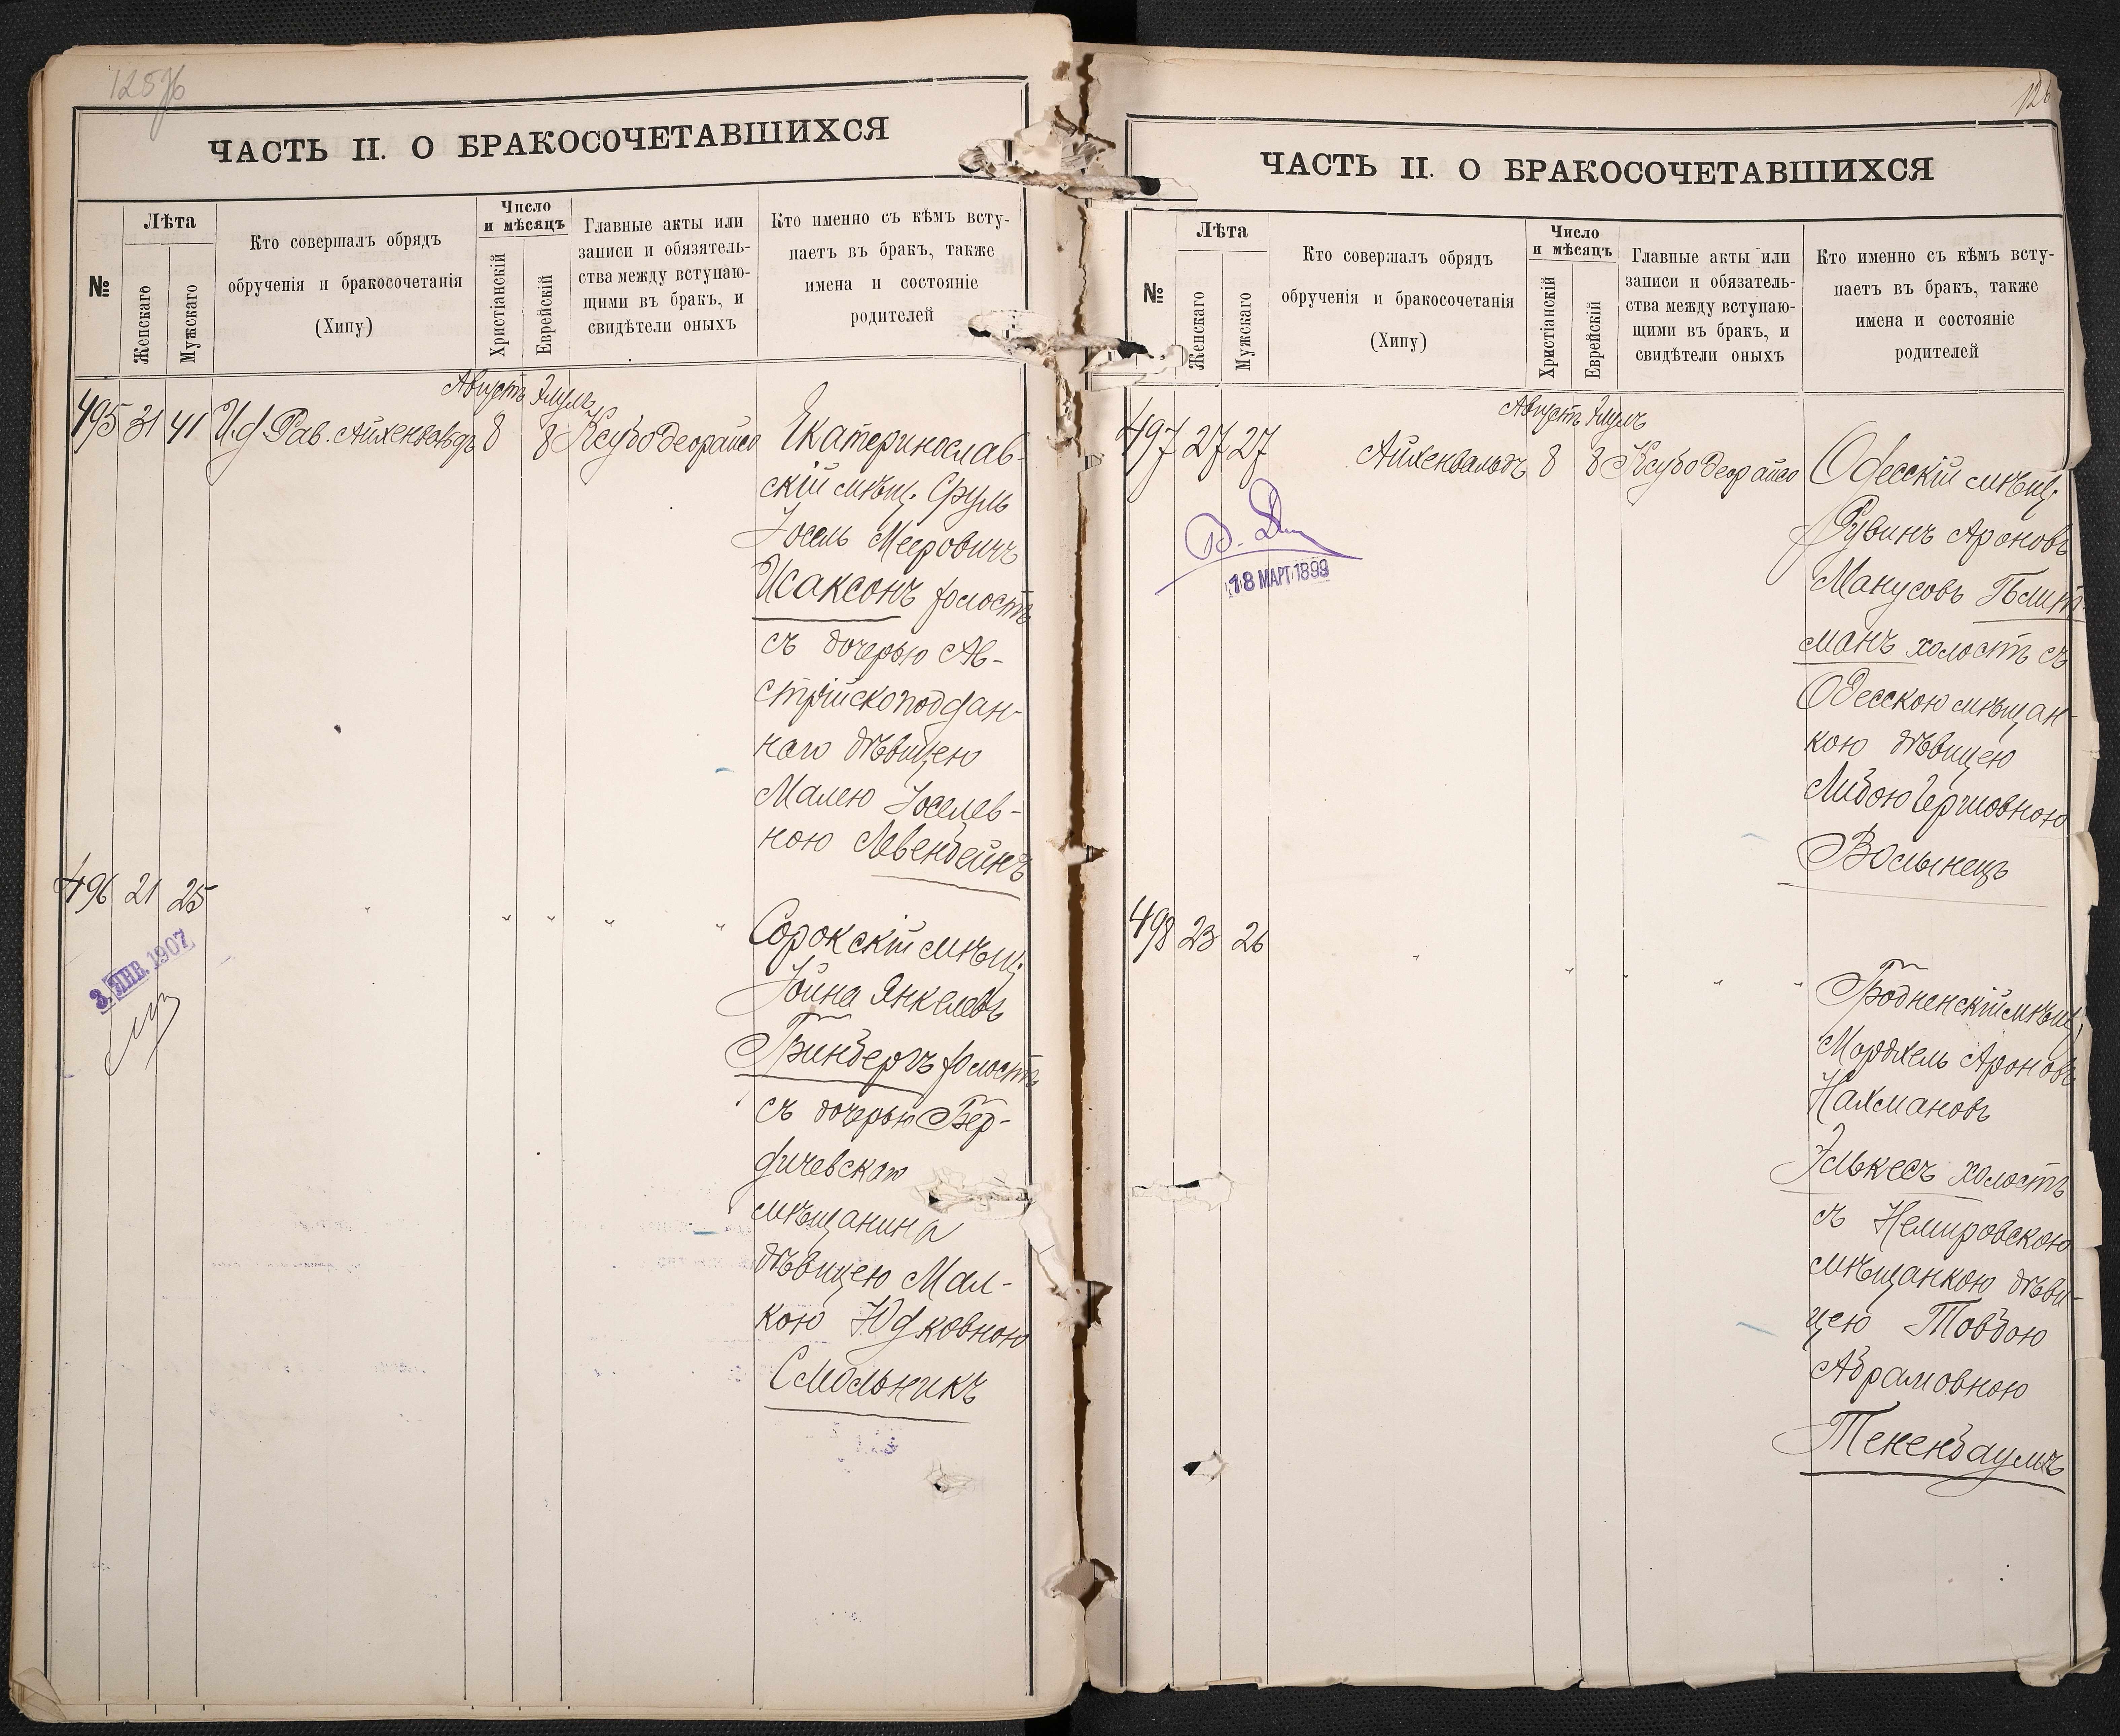 ЧАСТЬ II. О БРАКОСОЧЕТАВШИХСЯ
№
Лѣта
Женскаго
Мужскаго
Кто совершалъ обрядъ
обрученія и бракосочетанія
(Хипу)
Число
и мѣсяцъ
Христіанскій
Еврейскій
Главные акты или
записи и обязатель-
ства между вступаю-
щими въ бракъ, и
свидѣтели оныхъ
Кто именно съ кѣмъ всту-
паетъ въ бракъ, также
имена и состояніе
родителей
Августъ Элулъ
495 31 41 И.д. Рав. Айхенвальдъ 8 8 Ксубо Деорайсо
Екатеринослав-
скій мѣщ. Сруль
Іосель Мееровичъ
Исаксонъ холостъ
съ дочерью Ав-
стрійскоподдан-
наго дѣвицею
Малею Іоселев-
ною Левенбейнъ
496 21 25 " " " " "
3 ЯНВ. 1907
Сорокскій мѣщ.
Іойна Янкелевъ
Гринбергъ холостъ
съ дочерью Бер-
дичевскаго
мѣщанина
дѣвицею Мал-
кою Юдковною
Смольникъ
126
ЧАСТЬ II. О БРАКОСОЧЕТАВШИХСЯ
№
Лѣта
Женскаго
Мужскаго
Кто совершалъ обрядъ
обрученія и бракосочетанія
(Хипу)
Число
и мѣсяцъ
Христіанскій
Еврейскій
Главные акты или
записи и обязатель-
ства между вступаю-
щими въ бракъ, и
свидѣтели оныхъ
Кто именно съ кѣмъ всту-
паетъ въ бракъ, также
имена и состояніе
родителей
Августъ Элулъ
497 27 27 Айхенвальдъ 8 8 Ксубо Деорайсо
18 МАРТ 1899
Одесскій мѣщ.
Рувинъ Ароновъ
Манусовъ
манъ холостъ съ
Одесскою мѣщан-
кою дѣвицею
Либою Гершовною
Волынецъ
498 23 26 " " " " "
Гродненскій мѣщ.
Мордхель Ароновъ
Нахмановъ
Элькесъ холостъ
съ Немировскою
мѣщанкою дѣви-
цею Товбою
Абрамовною
Тененбаумъ